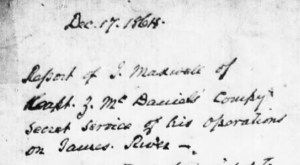 Dec. 17. 1864.
Report of J. Maxwell of
Capt. Z. McDaniel's Compy
Secret Service of his operations
on James River —